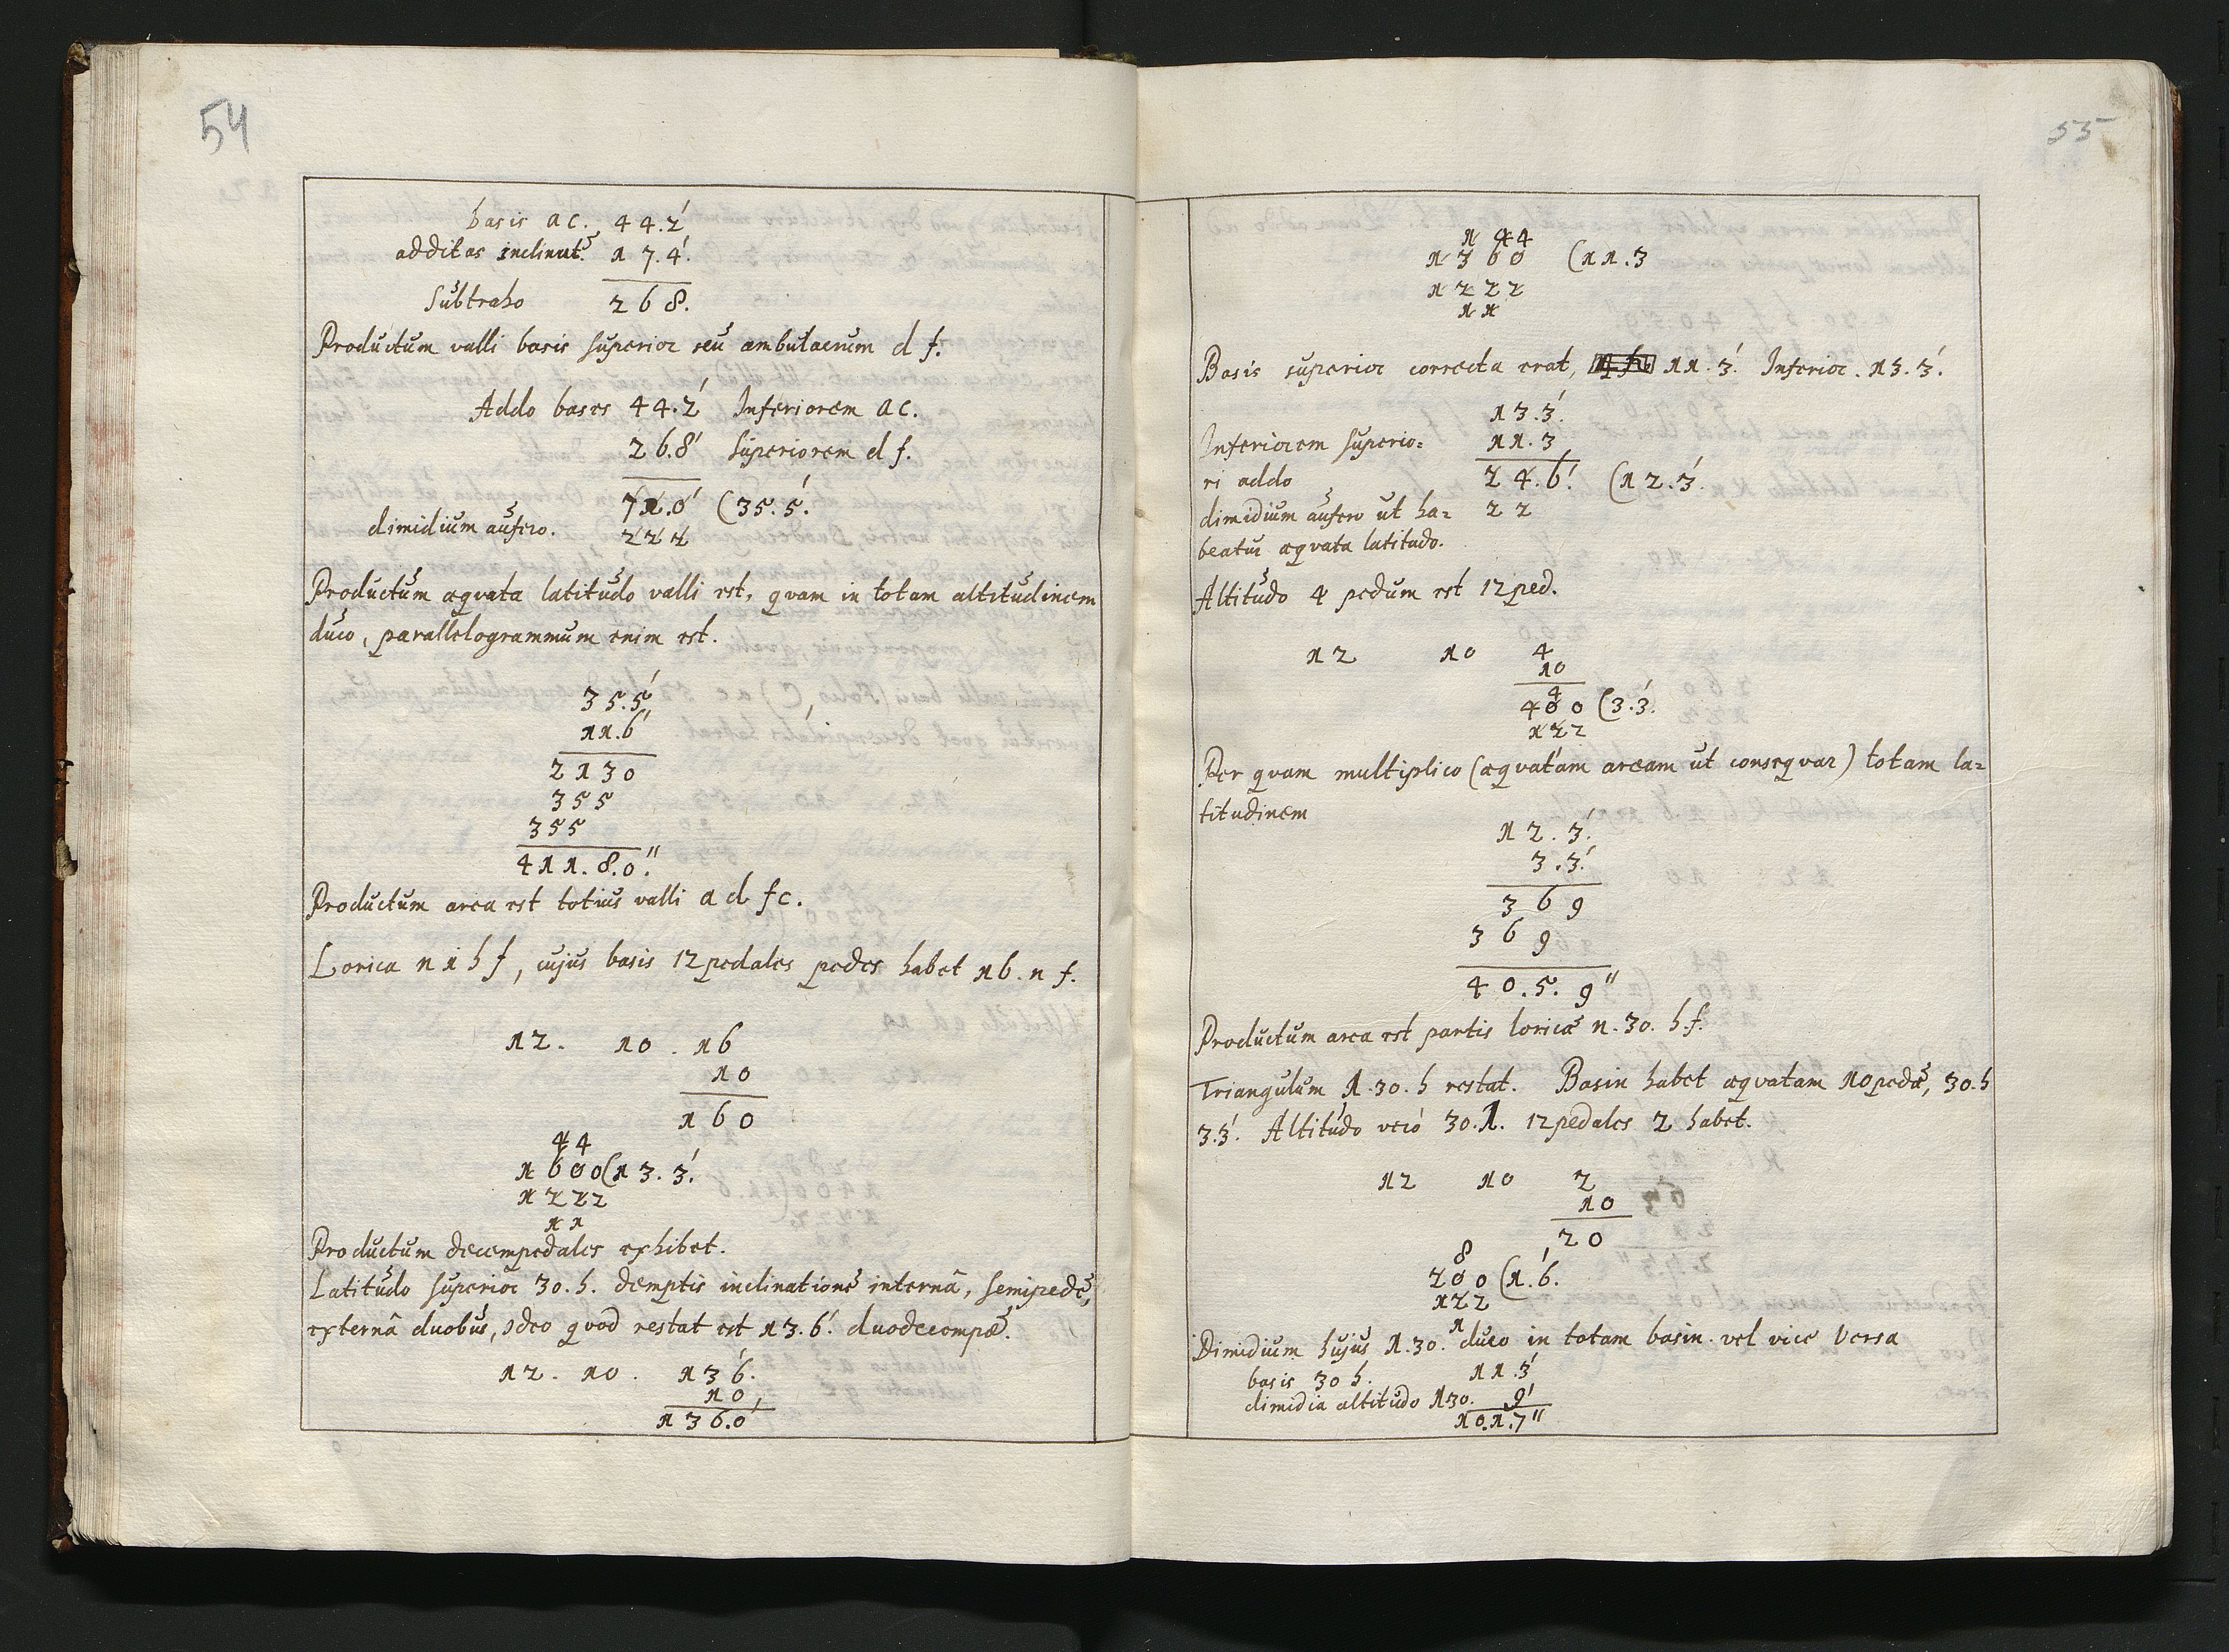 54
basis ac. 44.2'
additas inclinat. 17.4'.
Subtraho 268.
Productum valli basis superior seu ambulacrum d f.
Addo bases 44.2' Inferiorem ac.
26.8' Superiorem d f.
71.0' (35.5'.
dimidium aufero. 222
Productum æqvata latitudo valli est, qvam in totam altitudinem
duco, parallelogrammum enim est.
35.5'
11.6'
2130
355
355
411.8.0."
Productum area est totius valli a d f c.
Lorica n 1 h f, cujus basis 12pedales pedes habet 16. n f.
12. 10. 16
10
160
44
1600(13.3'.
1222
11
Productum decempedales exhibet.
Latitudo superior 30. h. demptis inclinatione internâ, semipede,
externâ duobus, ideo qvod restat est 13.6'. duodecempæ.
12. 10. 13 6'.
10,
136.0'
55
1 44
1360 (11.3
1222
11
Basis superior correcta erat, 11.3'. Inferior. 13.3'.
13.3'.
Inferiorem superio= 11.3
ri addo 24.6'. (12.3'.
dimidium aufero ut ha= 22
beatur æqvata latitudo.
Altitudo 4 pedum est 12ped.
12 10 4
10
4
400 (3.3'.
122
Per qvam multiplico (æqvatam aream ut conseqvar) totam la=
titudinem
12.3'.
3.3'.
369
369
40.5.9"
Productum area est partis loricæ n. 30. h. f.
Triangulum 1.30.h restat. Basin habet æqvatam 10pedæ, 30.h
3.3'. Altitudo verò 30.1. 12pedales 2 habet.
12 10 2
10
20
8
200 (1.6'.
122
Dimidium hujus 1.30. duco in totam basin. vel vice versa
basis 30 h. 11.3'
dimidia altitudo 1.30. 9'
10.1.7"